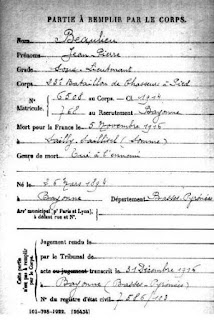 PARTIE À REMPLIR PAR LE CORPS.
Nom Beaulieu
Prénoms Jean Pierre
Grade Sous-Lieutenant
Corps Bataillon de Chasseurs à Pied
N° Matricule. 6508 au Corps. — Cl. 1914
768 au Recrutement Bayonne
Mort pour la France le 5 Novembre 1916
à Sailly-Saillisel (Somme)
Genre de mort Tué à l'ennemi
Né le Mars 1894
à Bayonne Département Basses-Pyrénées
Arr' municipal (p' Paris et Lyon), à défaut rue et N°.
Cette partie n'est pas à remplir par le Corps.
Jugement rendu le
par le Tribunal de
acte ou jugement transcrit le 31 Décembre 1916
à Bayonne (Basses-Pyrénées)
N° du registre d'état civil